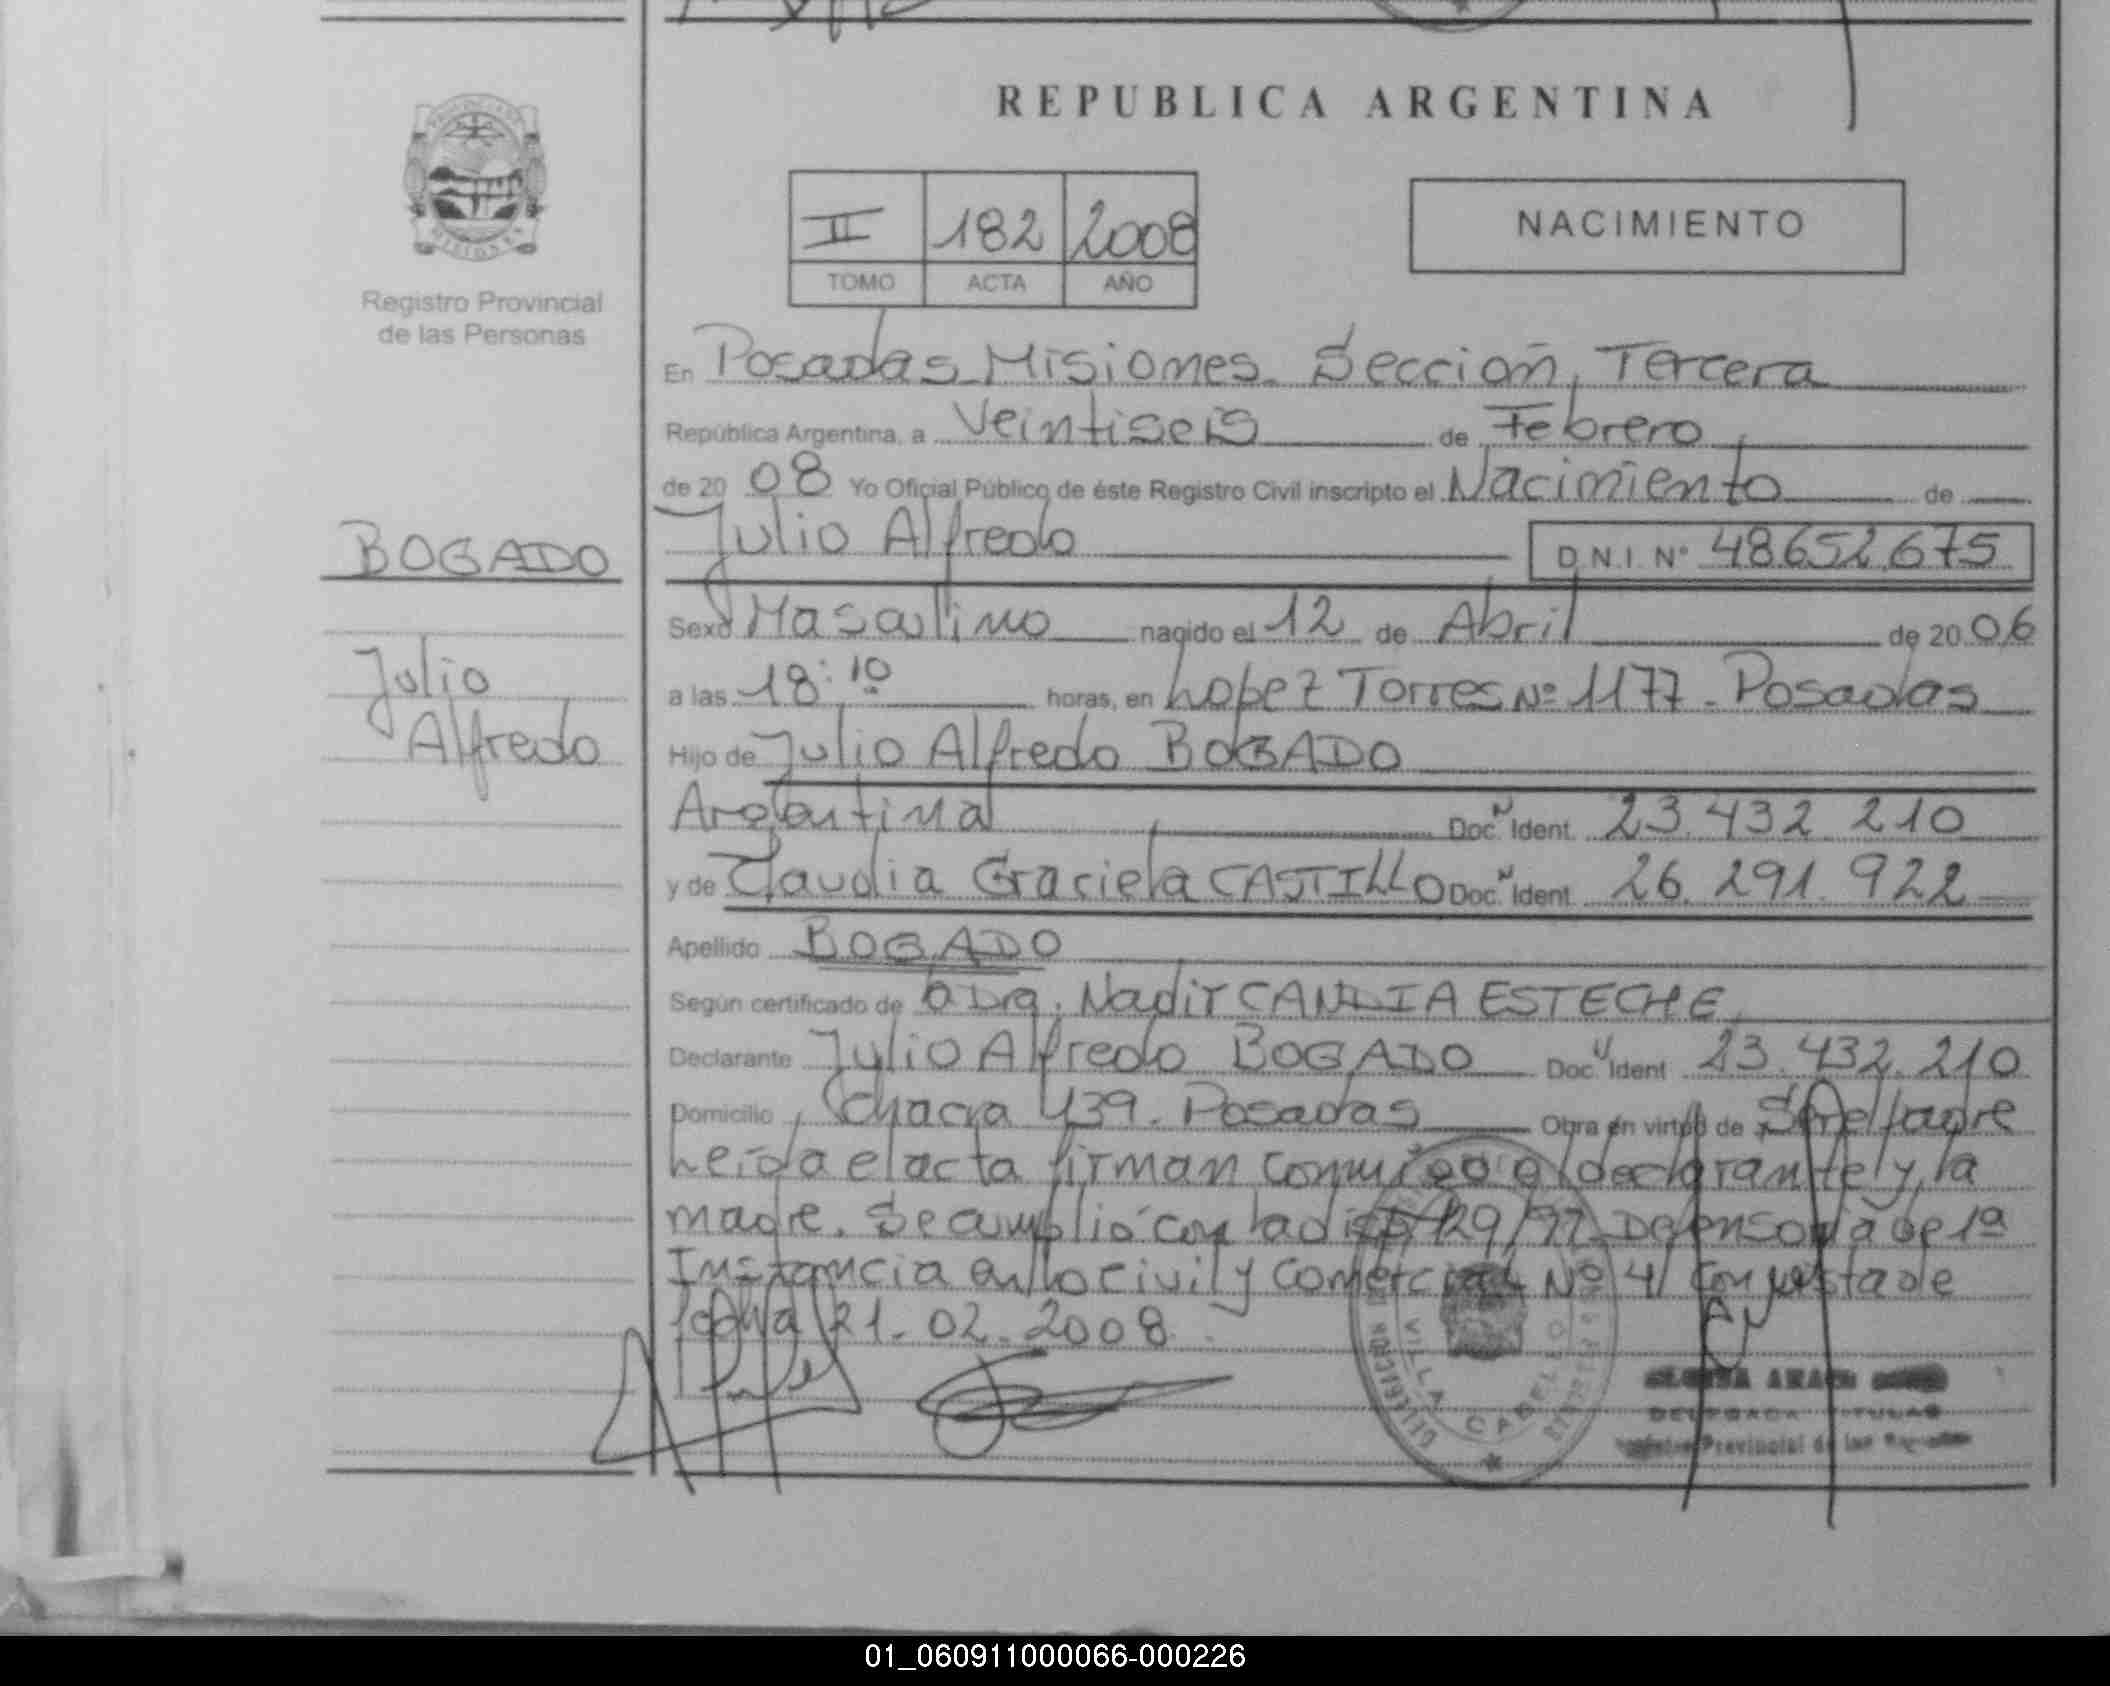 REPUBLICA ARGENTINA
II 182 2008
TOMO ACTA AÑO
NACIMIENTO
MISIONES
Registro Provincial
de las Personas
En Posadas Misiones. Sección Tercera
República Argentina, a Veintiseis de Febrero
de 20 08 Yo Oficial Público de éste Registro Civil inscripto el Nacimiento de
BOGADO
Julio Alfredo D.N.I. Nº 48.652.675
Sexo Masculino nacido el 12 de Abril de 20 06
Julio
a las 18:10 horas, en Lopez Torres Nº 1177 - Posadas
Alfredo
Hijo de Julio Alfredo BOGADO
Argentina Doc. Ident. 23.432.210
y de Claudia Graciela CASTILLO Doc. Ident. 26.291.922
Apellido BOGADO
Según certificado de Dra. Nadir CANDIA ESTECHE
Declarante Julio Alfredo BOGADO Doc. Ident. 23.432.210
Domicilio Chacra 139. Posadas Obra en virtud de Ser el padre
Leída el acta firman conmigo el declarante y la
madre. Se cumplió con la 129/97 Defensoría de 1ª
Instancia en lo civil y Comercial Nº 4 con vista de
fecha 21-02-2008.
VILLA CABELLO
DELEGADA TITULAR
Registro Provincial de las Personas
01_060911000066-000226